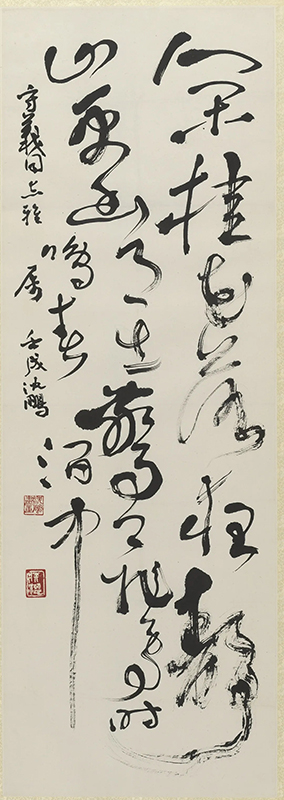 人閑桂花落夜靜
山空月出驚山鳥時
鳴春澗中
守義同志雅
屬 壬戌沈鵬